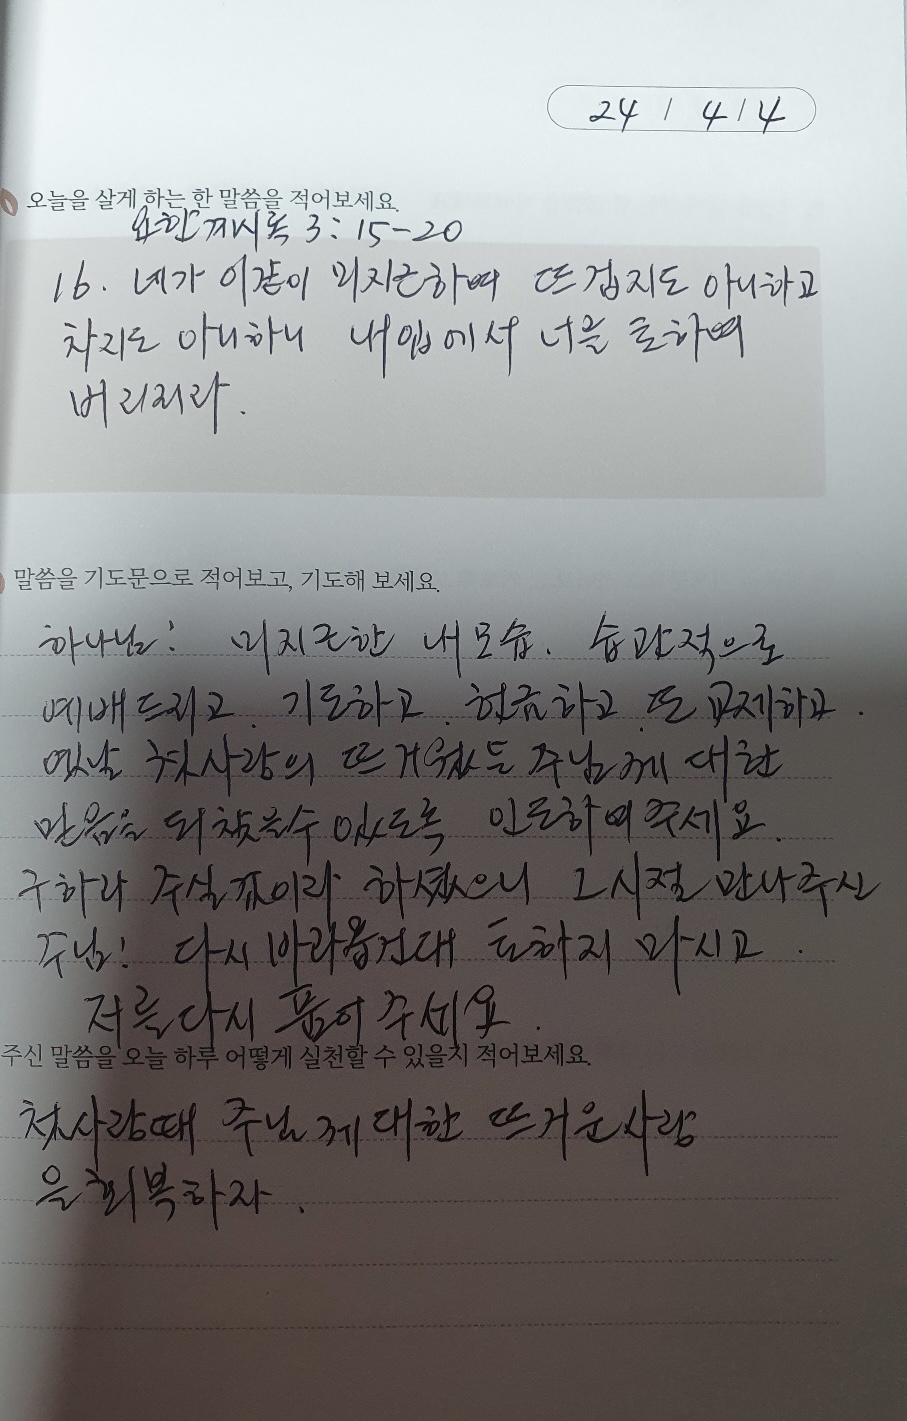 24 / 4 / 4
오늘을 살게 하는 한 말씀을 적어보세요.
요한계시록 3:15-20
16. 네가 이같이 미지근하여 뜨겁지도 아니하고
차지도 아니하니 내 입에서 너를 토하여
버리리라.
말씀을 기도문으로 적어보고, 기도해 보세요.
하나님! 미지근한 내모습. 습관적으로
예배드리고. 기도하고. 헌금하고. 또 교제하고.
옛날 첫사랑의 뜨거웠든 주님께 대한
믿음을 되찾을수 있도록 인도하여주세요.
구하라 주실것이라 하셨으니 그시절 만나주신
주님! 다시 바라옵건대 토하지 마시고.
저를 다시 품어 주세요.
주신 말씀을 오늘 하루 어떻게 실천할 수 있을지 적어보세요.
첫사랑때 주님께 대한 뜨거운사랑
을 회복하자.